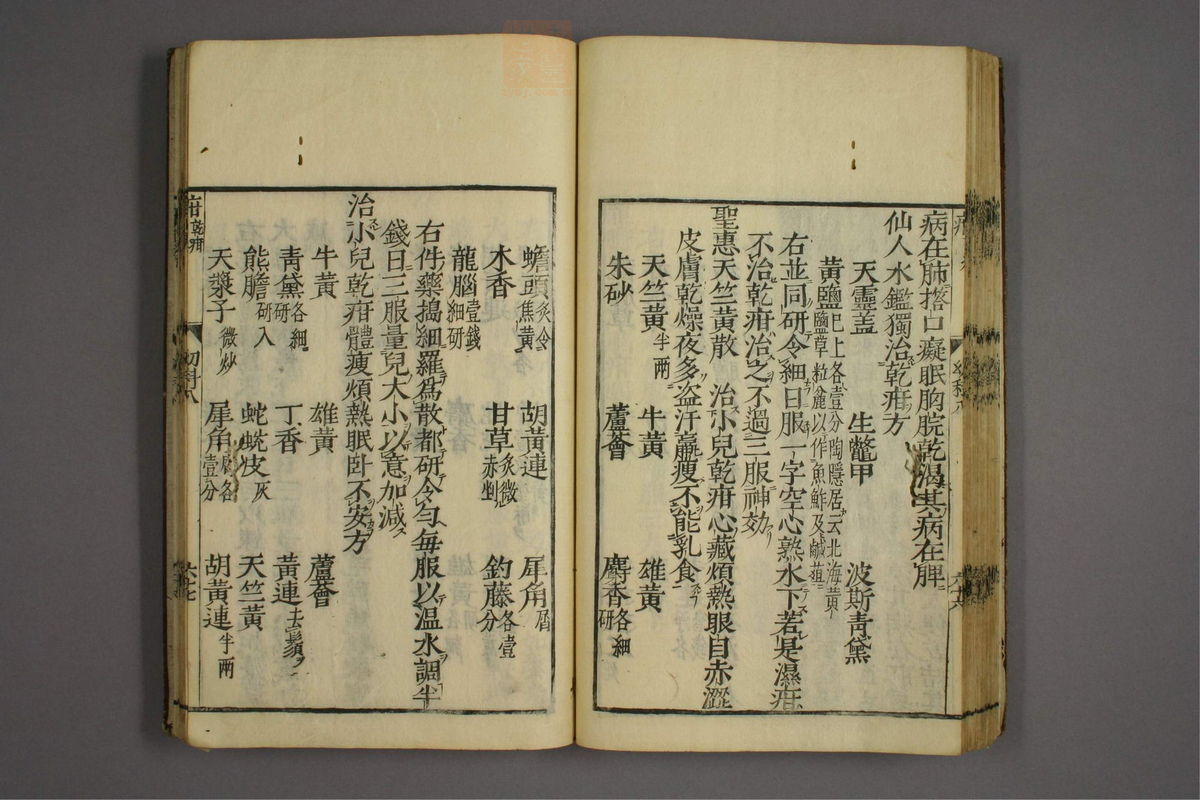 病在肺揞口癡眠胸脘乾渴其病在脾
仙人水鑑獨治乾疳方
天靈蓋 生鼈甲 波斯青黛
黃鹽巳上各壹分陶隱居云北海黃
鹽草粒麄以作魚鮓及鹹葅
右並同研令細日服一字空心熟水下若是濕疳
不治乾疳治之不過三服神効
聖惠天竺黃散 治小兒乾疳心藏煩熱眼目赤澀
皮膚乾燥夜多盜汗羸瘦不能乳食
天竺黃半兩 牛黃 雄黃
朱砂 蘆薈 麝香各細研
蟾頭炙令焦黃 胡黃連 犀角屑
木香 甘草炙微赤剉 釣藤各壹分
龍腦壹錢細研
右件藥搗細羅爲散都研令勻每服以温水調半
錢日三服量兒大小以意加減
治小兒乾疳體瘦煩熱眠卧不安方
牛黃 雄黃 蘆薈
青黛各細研 丁香 黃連去鬚
熊膽研入 蛇蛻皮灰 天竺黃
天漿子微炒 犀角屑各壹分 胡黃連半兩
乾疳
幼科八
六七